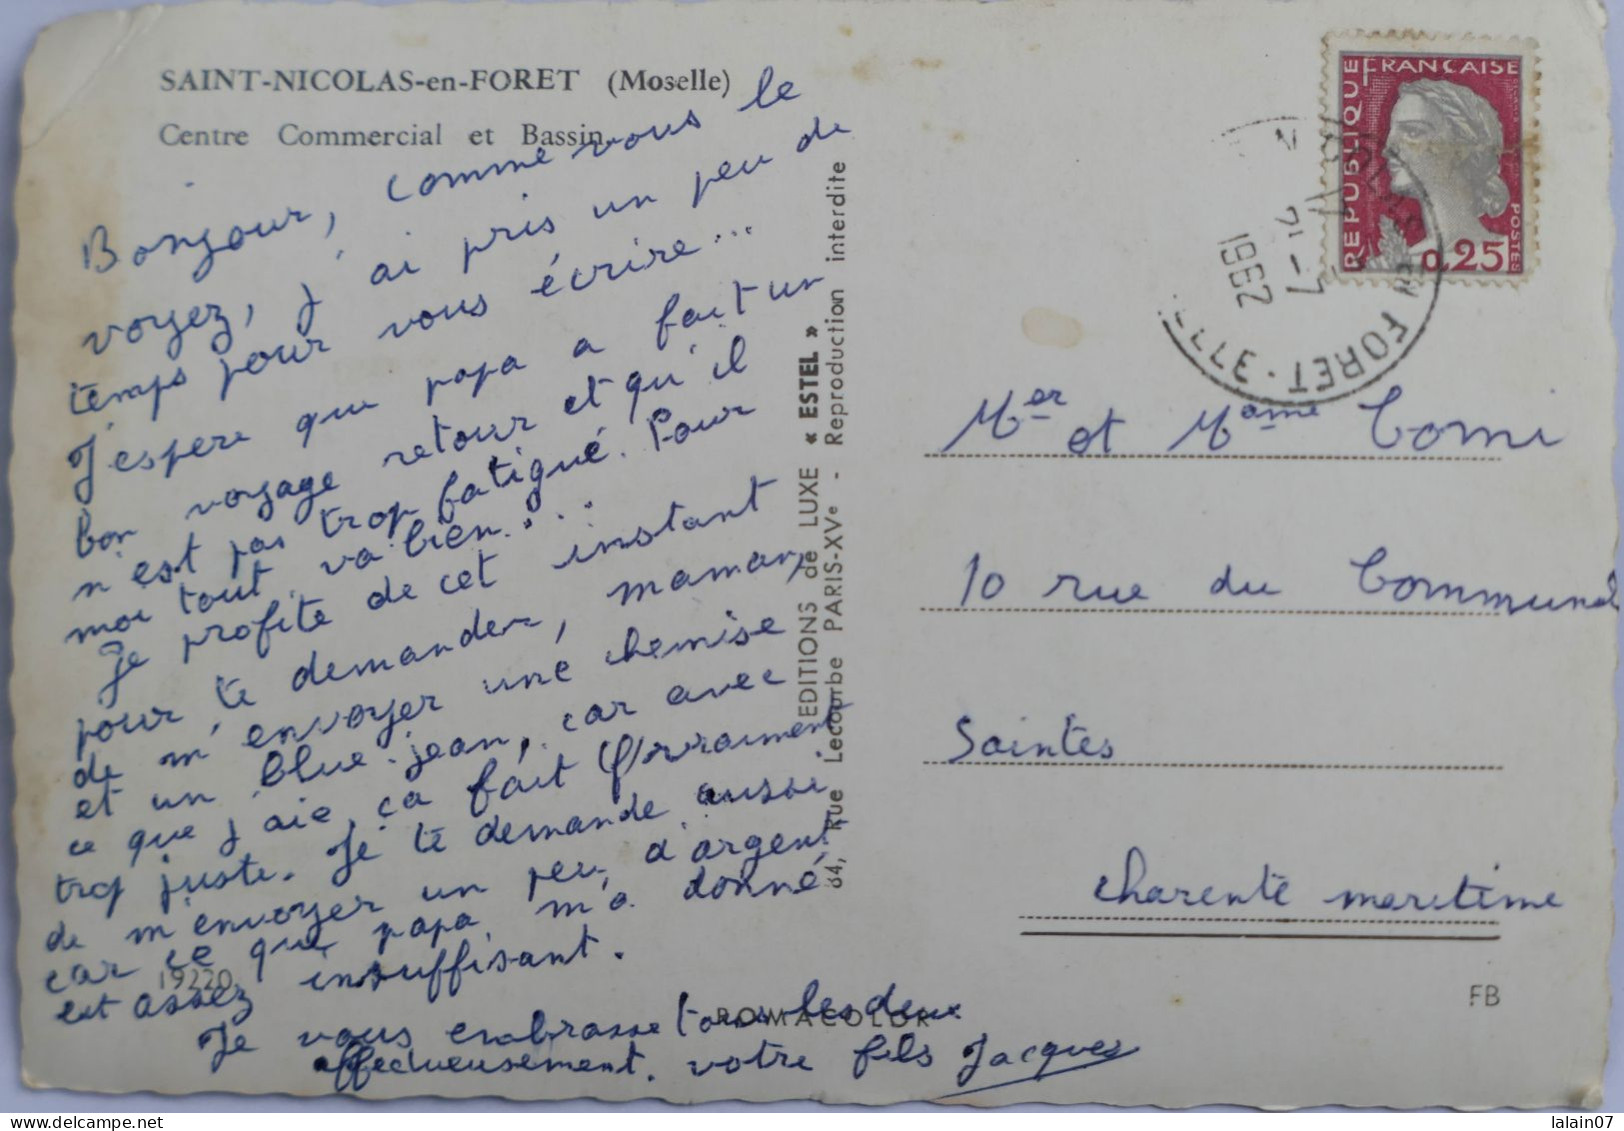 SAINT-NICOLAS-en-FORET (Moselle)
Centre Commercial et Bassin
Bonjour, comme vous le
voyez, j'ai pris un peu de
temps pour vous écrire...
J'espère que papa a fait un
bon voyage retour et qu'il
n'est pas trop fatigué. Pour
moi tout va bien....
Je profite de cet instant
pour te demander, maman,
de m'envoyer une chemise
et un blue-jean, car avec
ce que j'aie, ça fait vraiment
trop juste. Je te demande aussi
de m'envoyer un peu d'argent,
car ce que papa m'a donné
est assez insuffisant.
Je vous embrasse tous les deux
affectueusement. votre fils Jacques
19220
ROMACOLOR
EDITIONS de LUXE « ESTEL »
64, Rue Lecourbe PARIS-XVe - Reproduction interdite
REPUBLIQUE FRANCAISE
POSTES
0,25
FORET
21-7
1962
Mer et Mame Comi
10 rue du Communal
Saintes
charente maritime
FB
lalain07